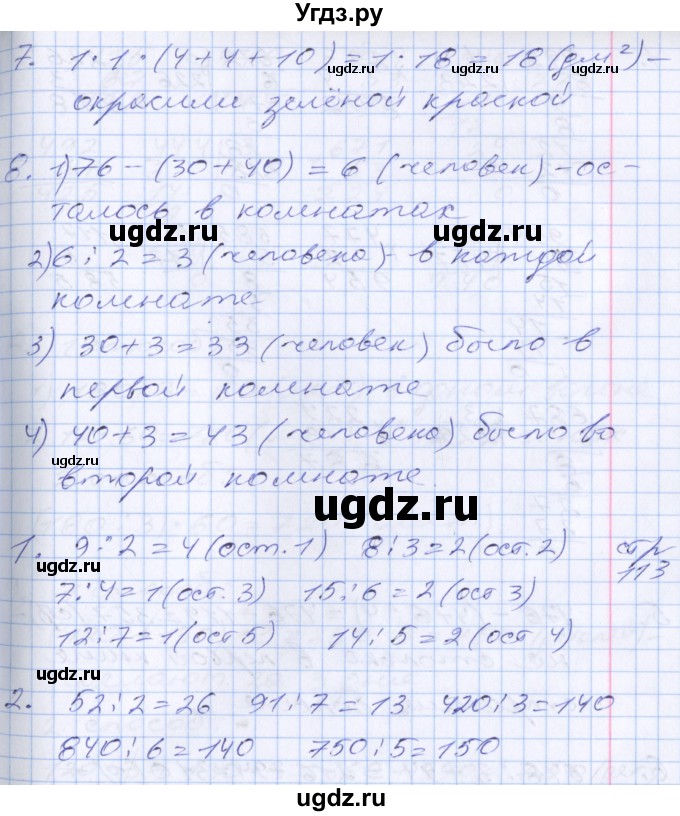 Угдз.ру
7. 1·1·(4+4+10)=1·18=18 (дм²) –
окрасили зелёной краской
8. 1) 76 – (30+40) = 6 (человек) – ос-
талось в комнатах
2) 6 : 2 = 3 (человека) – в каждой
комнате
3) 30+3=33 (человек) было в
первой комнате
4) 40+3=43 (человека) было во
второй комнате.
1. 9 : 2 = 4 (ост. 1) 8 : 3 = 2 (ост. 2) стр
113
7 : 4 = 1 (ост. 3) 15 : 6 = 2 (ост 3)
12 : 7 = 1 (ост 5) 14 : 5 = 2 (ост 4)
2. 52 : 2 = 26 91 : 7 = 13 420 : 3 = 140
840 : 6 = 140 750 : 5 = 150
ugdz.ru
ugdz.ru
ugdz.ru
ugdz.ru
ugdz.ru
ugdz.ru
ugdz.ru
ugdz.ru
ugdz.ru
ugdz.ru
ugdz.ru